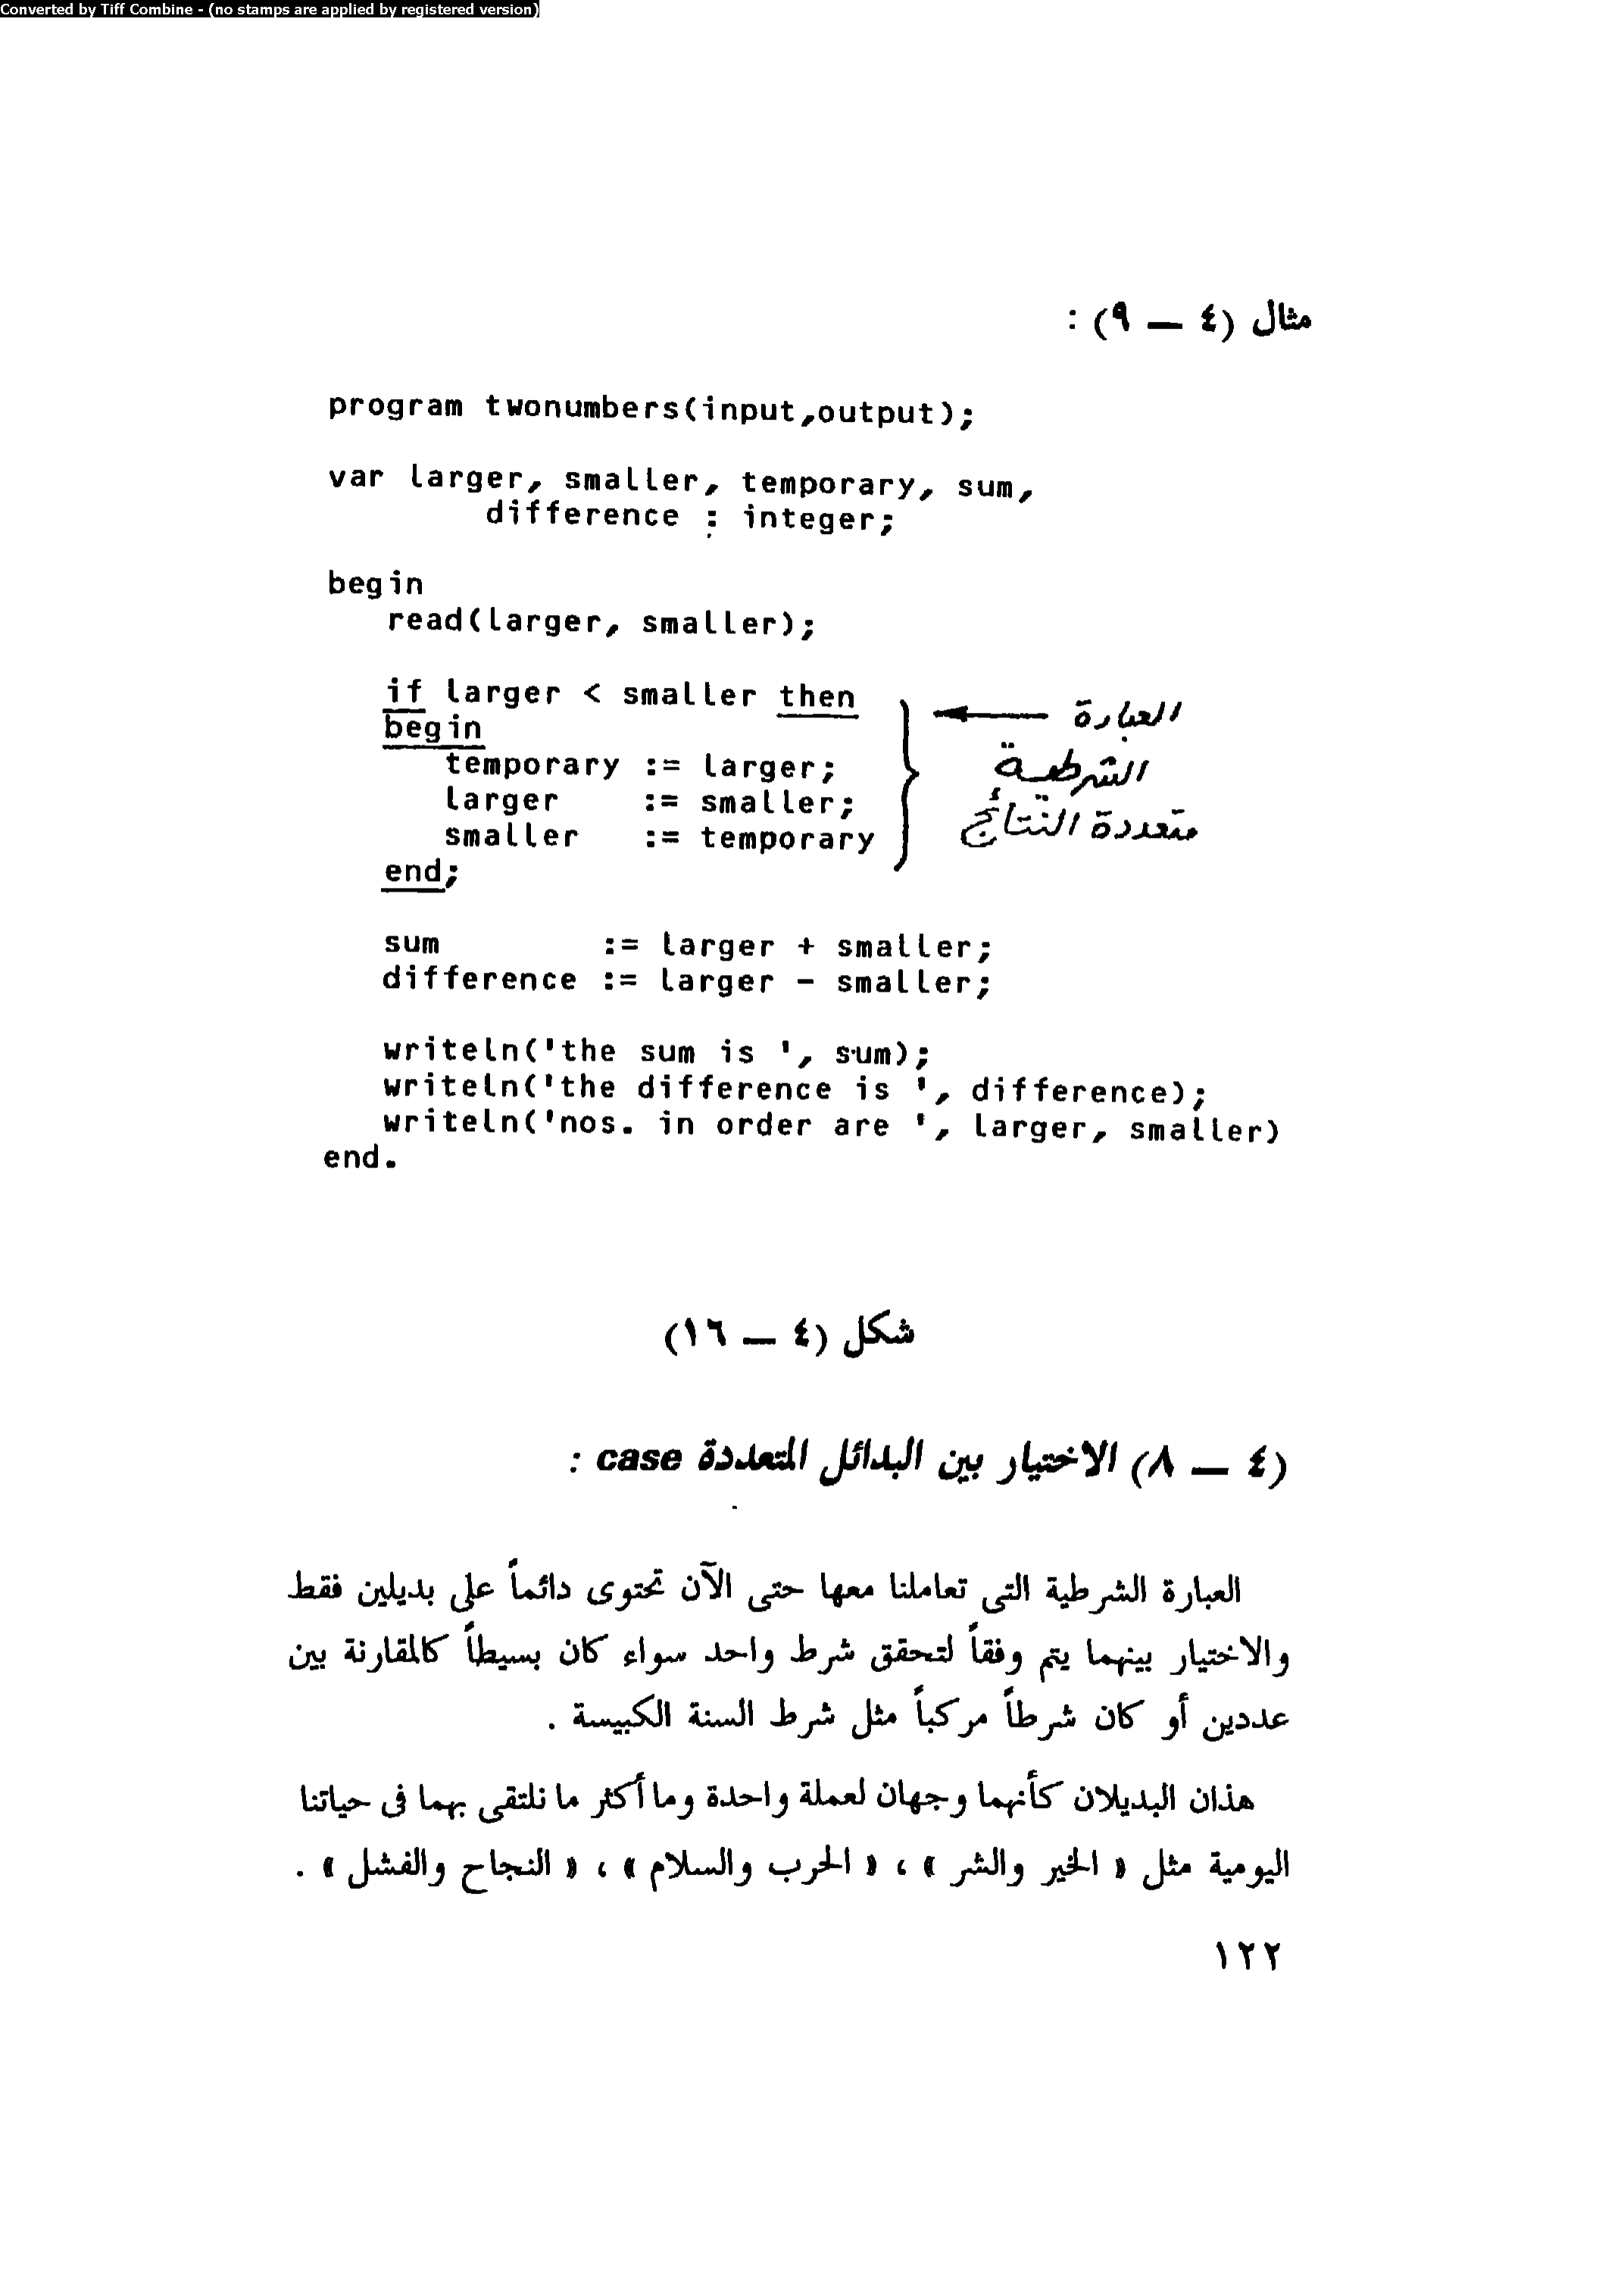 Converted by Tiff Combine - (no stamps are applied by registered version)
مثال (٤ — ٩) :
program twonumbers(input,output);
var larger, smaller, temporary, sum,
difference : integer;
begin
read(larger, smaller);
if larger < smaller then
begin
temporary := larger;
larger := smaller;
smaller := temporary
end;
العبارة
الشرطية
متعددة النتائج
sum := larger + smaller;
difference := larger - smaller;
writeln('the sum is ', sum);
writeln('the difference is ', difference);
writeln('nos. in order are ', larger, smaller)
end.
شكل (٤ — ١٦)
(٤ — ٨) الاختيار بين البدائل المتعددة case :
العبارة الشرطية التى تعاملنا معها حتى الآن تحتوى دائماً على بديلين فقط
والاختيار بينهما يتم وفقاً لتحقق شرط واحد سواء كان بسيطاً كالمقارنة بين
عددين أو كان شرطاً مركباً مثل شرط السنة الكبيسة .
هذان البديلان كأنهما وجهان لعملة واحدة وما أكثر ما نلتقى بهما فى حياتنا
اليومية مثل « الخير والشر » ، « الحرب والسلام » ، « النجاح والفشل » .
١٢٢